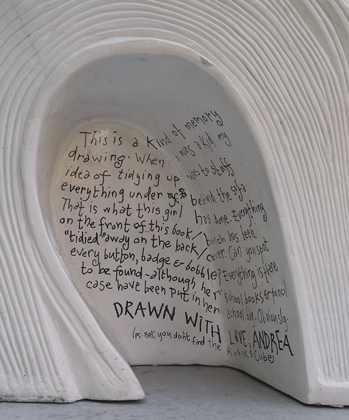 This is a kind of memory
drawing. When I was a kid, my
idea of tidying up was to stuff
everything under & behind the sofa
That is what this girl has done. Everything
on the front of this book / bench has been
"tidied" away on the back / cover. Can you spot
every button, badge & bobble? Everything is here
to be found - although her school books & pencil
case have been put in her school bag. Obviously.
DRAWN WITH LOVE, ANDREA
(PS Bet you don't find the
Rubik's Cube)